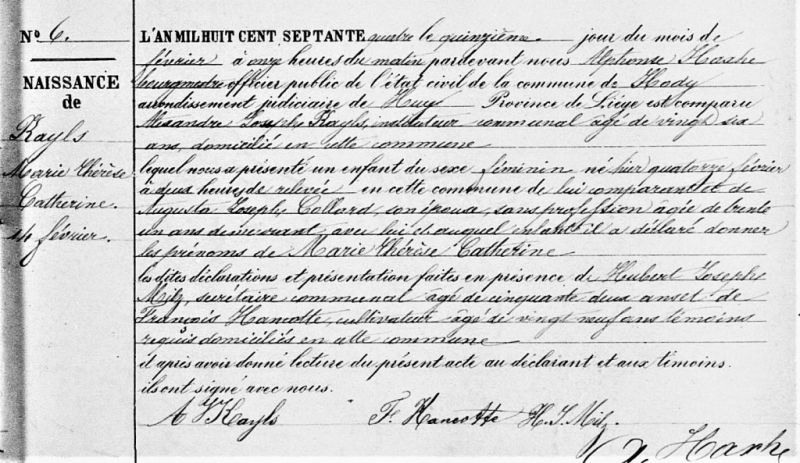 N° 6.
NAISSANCE
de
Kayls
Marie Thérèse
Catherine.
14 février.
L'AN MIL HUIT CENT SEPTANTE quatre le quinzième jour du mois de
février à onze heures du matin pardevant nous Alphonse
bourgmestre officier public de l'état civil de la commune de Hody
arrondissement judiciaire de Huy Province de Liége est comparu
Alexandre Joseph Kayls, instituteur communal âgé de vingt six
ans, domicilié en cette commune
lequel nous a présenté un enfant du sexe féminin né hier quatorze février
à deux heures de relevée en cette commune de lui comparant et de
Augusta Joseph Collard, son épouse, sans profession âgée de trente
un ans demeurant avec lui et auquel enfant il a déclaré donner
les prénoms de Marie Thérèse Catherine
les dites déclarations et présentation faites en présence de Hubert Joseph
Milz, secrétaire communal âgé de cinquante deux ans et de
François Hancotte, cultivateur âgé de vingt neuf ans témoins
requis domiciliés en cette commune
il après avoir donné lecture du présent acte au déclarant et aux témoins.
ils ont signé avec nous.
A J Kayls F. Hancotte H. J. Milz.